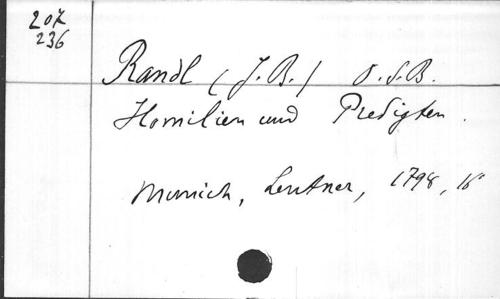 207
236
Randl (J. B.) O.S.B.
Homilien und Predigten.
Munich, Lentner, 1798, 16°